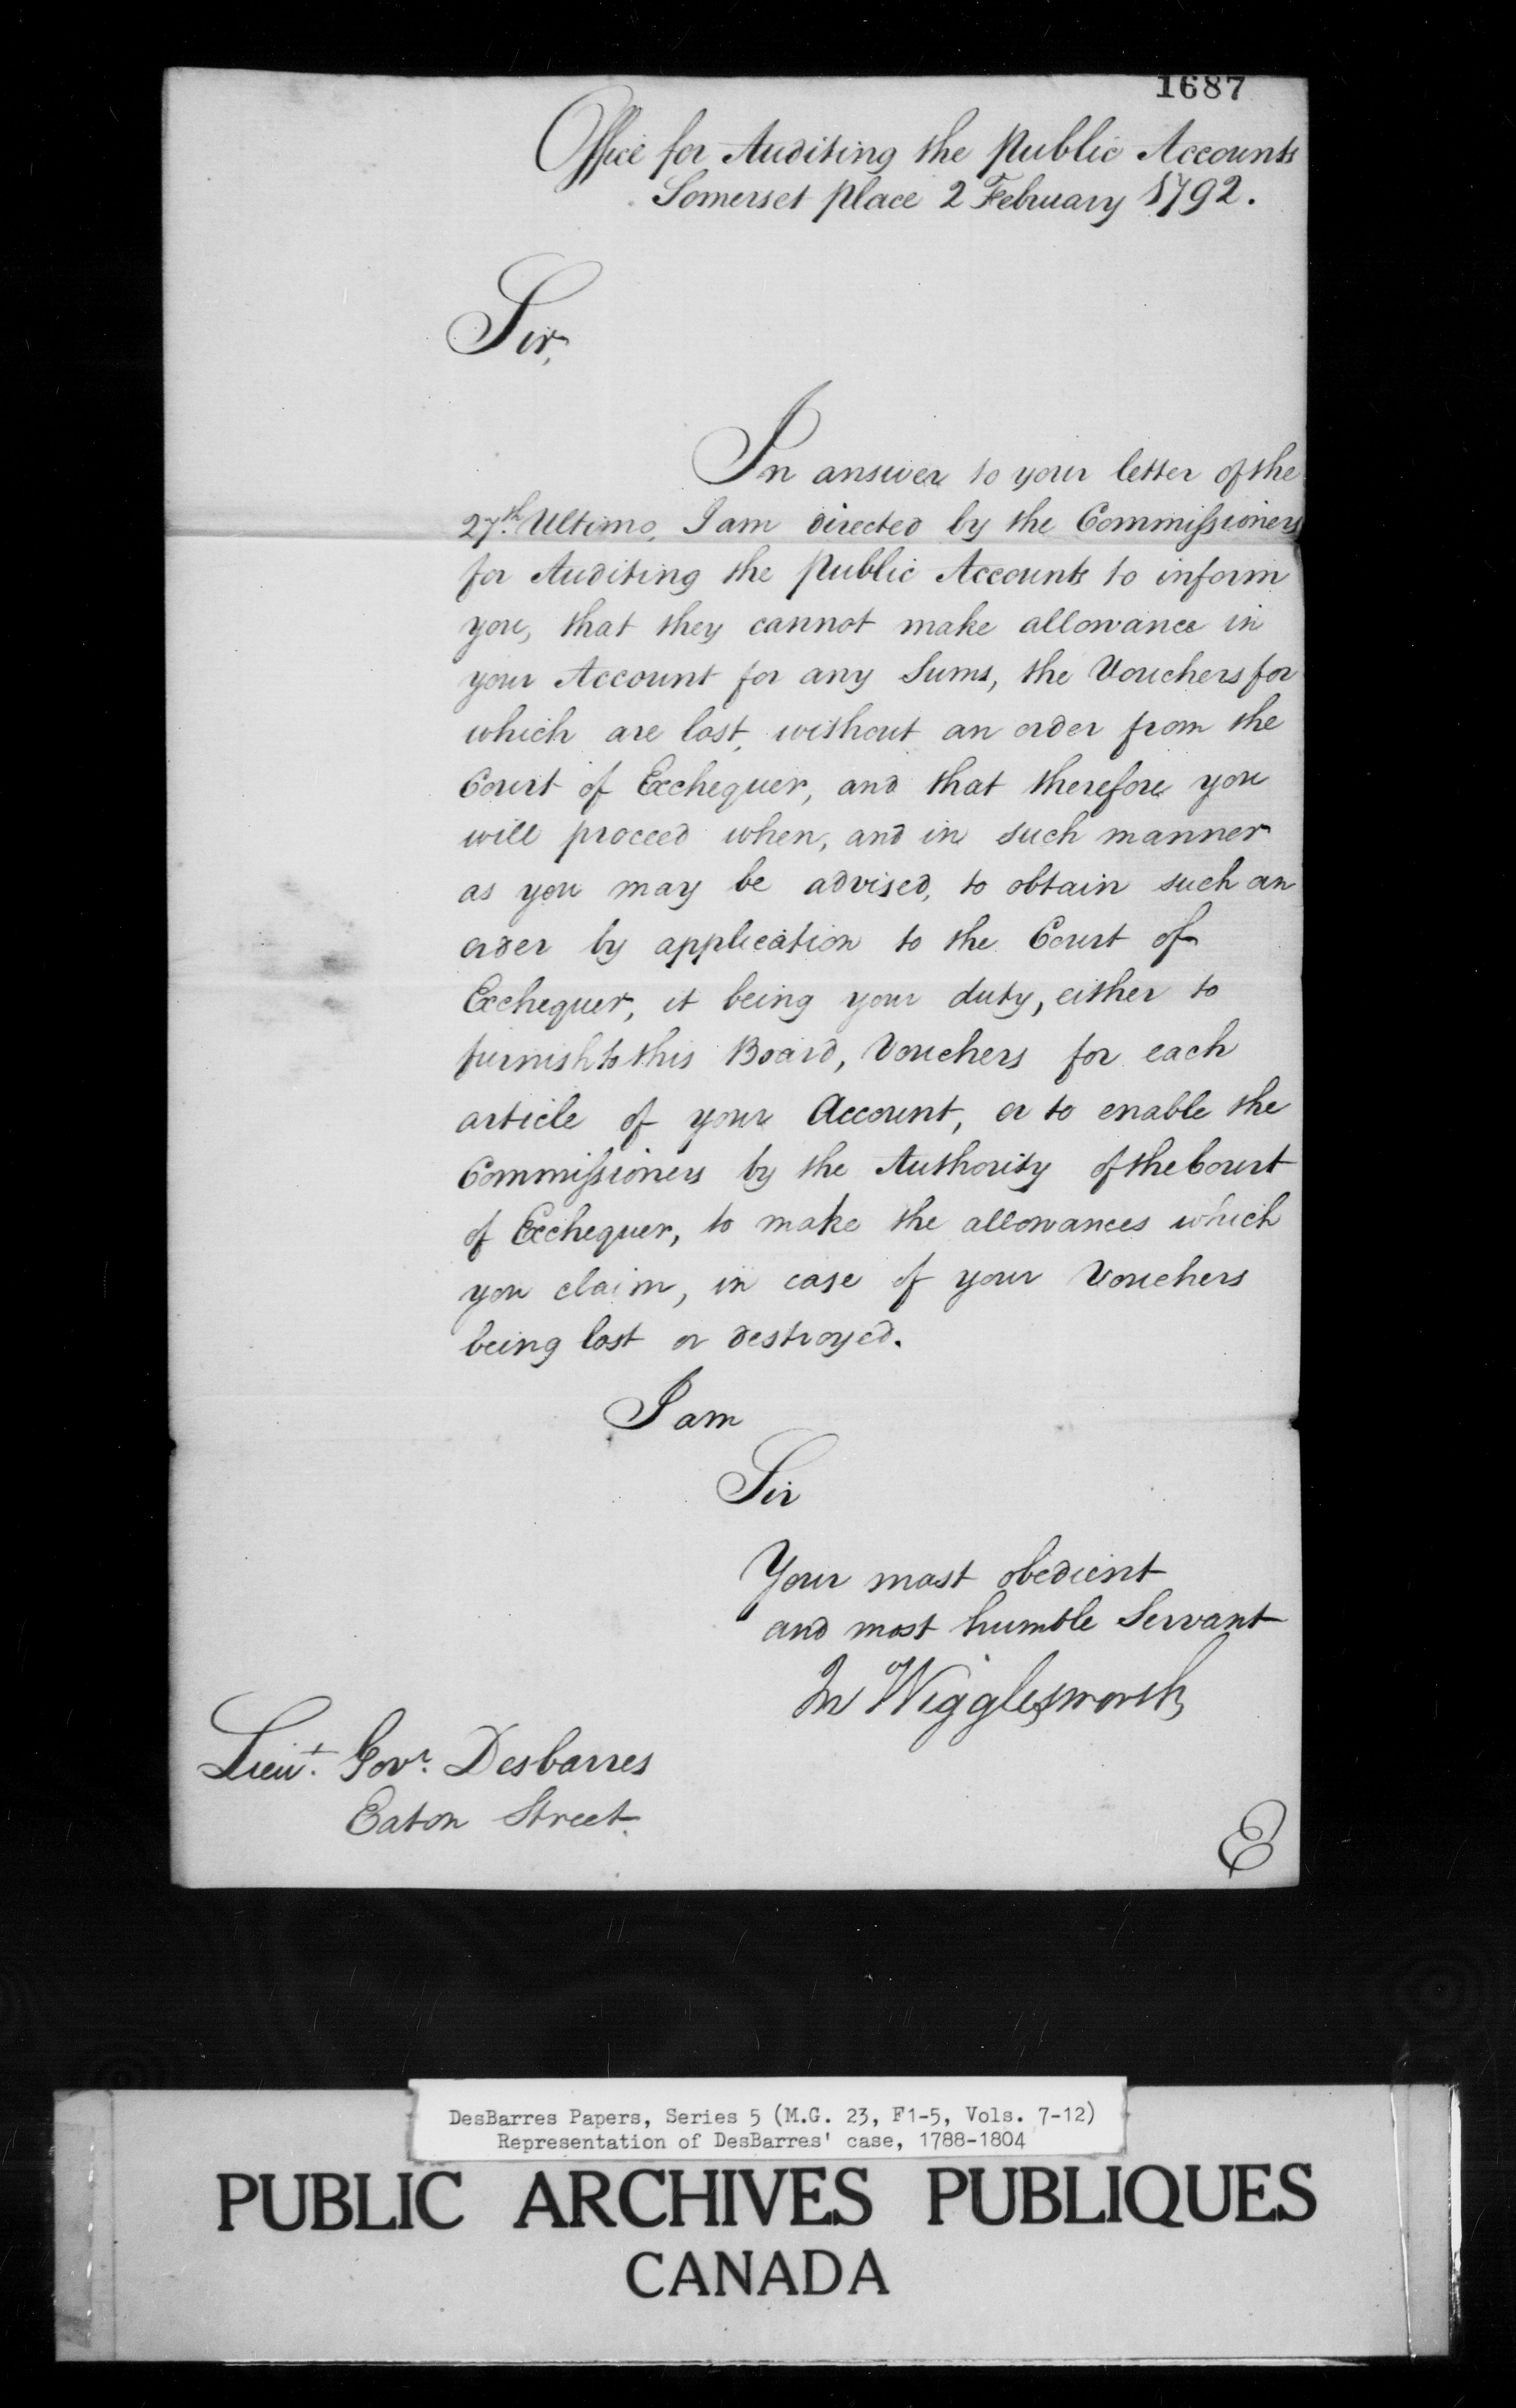 1687
Office for Auditing the Public Accounts
Somerset place 2 February 1792.
Sir,
In answer to your letter of the
27th. Ultimo, I am directed by the Commissioners
for Auditing the Public Accounts to inform
you, that they cannot make allowance in
your Account for any Sums, the Vouchers for
which are lost, without an order from the
Court of Exchequer, and that therefore you
will proceed when, and in such manner
as you may be advised, to obtain such an
order by application to the Court of
Exchequer, it being your duty, either to
furnish to this Board, Vouchers for each
article of your Account, or to enable the
Commissioners by the Authority of the Court
of Exchequer, to make the allowances which
you claim, in case of your Vouchers
being lost or destroyed.
I am
Sir
Your most obedient
and most humble Servant
Jn Wigglesworth
Lieut. Govr. Desbarres
Eaton Street.
E
DesBarres Papers, Series 5 (M.G. 23, F1-5, Vols. 7-12)
Representation of DesBarres' case, 1788-1804
PUBLIC ARCHIVES PUBLIQUES
CANADA